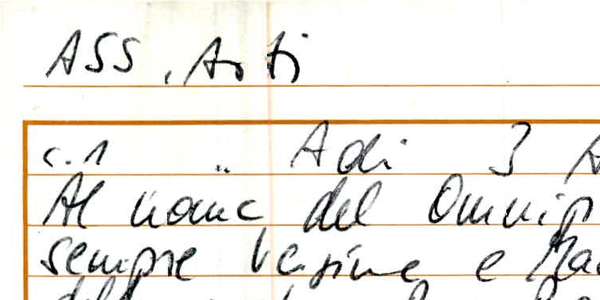 ASS. Arti
c.1 " Adi 3
Al nome del Omnip
sempre Vergine e Ma